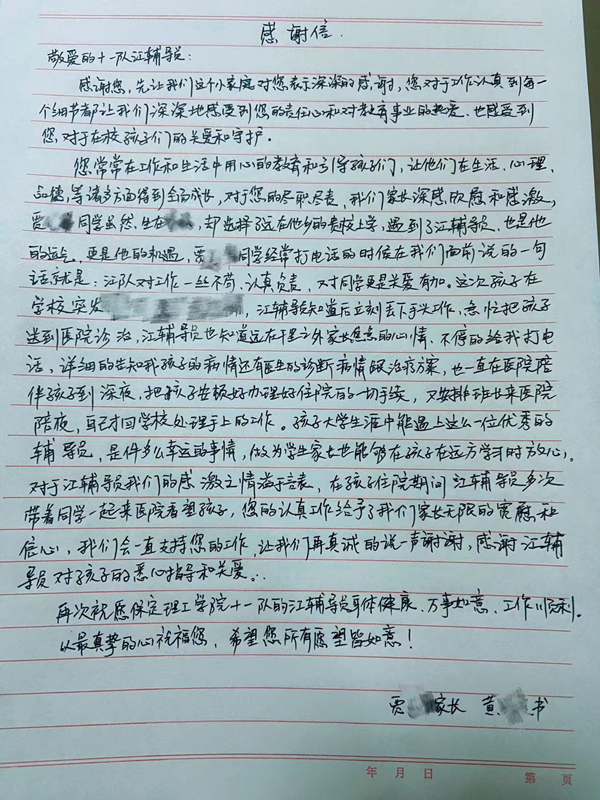 感谢信.
敬爱的十一队江辅导员:
感谢您,先让我们这个小家庭对您表示深深的感谢,您对于工作认真到每一
个细节都让我们深深地感受到您的责任心和对教育事业的热爱,也感受到
您对于在校孩子们的关爱和守护。
您常常在工作和生活中用心的教育和引导孩子们,让他们在生活、心理、
品德,等诸多方面得到全面成长,对于您的尽职尽责,我们家长深感欣慰和感激,
贾 同学虽然生在 ,却选择了远在他乡的贵校上学,遇到了江辅导员,也是他
的运气,更是他的机遇,贾 同学经常打电话的时候在我们面前说的一句
话就是:江队对工作一丝不苟,认真负责,对同学更是关爱有加。这次孩子在
学校突发 ,江辅导员知道后立刻丢下手头工作,急忙把孩子
送到医院诊治,江辅导员也知道远在千里之外家长焦急的心情,不停的给我打电
话,详细的告知我孩子的病情还有医生的诊断病情跟治疗方案,也一直在医院陪
伴孩子到深夜,把孩子安顿好办理好住院的一切手续,又安排班长来医院
陪夜,自己才回学校处理手上的工作。孩子大学生涯中能遇上这么一位优秀的
辅导员,是件多么幸运的事情,做为学生家长也能够在孩子在远方学习时放心。
对于江辅导员我们的感激之情溢于言表,在孩子住院期间江辅导员多次
带着同学一起来医院看望孩子,您的认真工作给予了我们家长无限的宽慰和
信心,我们会一直支持您的工作,让我们再真诚的说一声谢谢,感谢江辅
导员对孩子的悉心指导和关爱。
再次祝愿保定理工学院十一队的江辅导员身体健康、万事如意、工作顺利。
以最真挚的心祝福您,希望您所有愿望皆如意!
贾 家长 黄 书
年 月 日 第 页